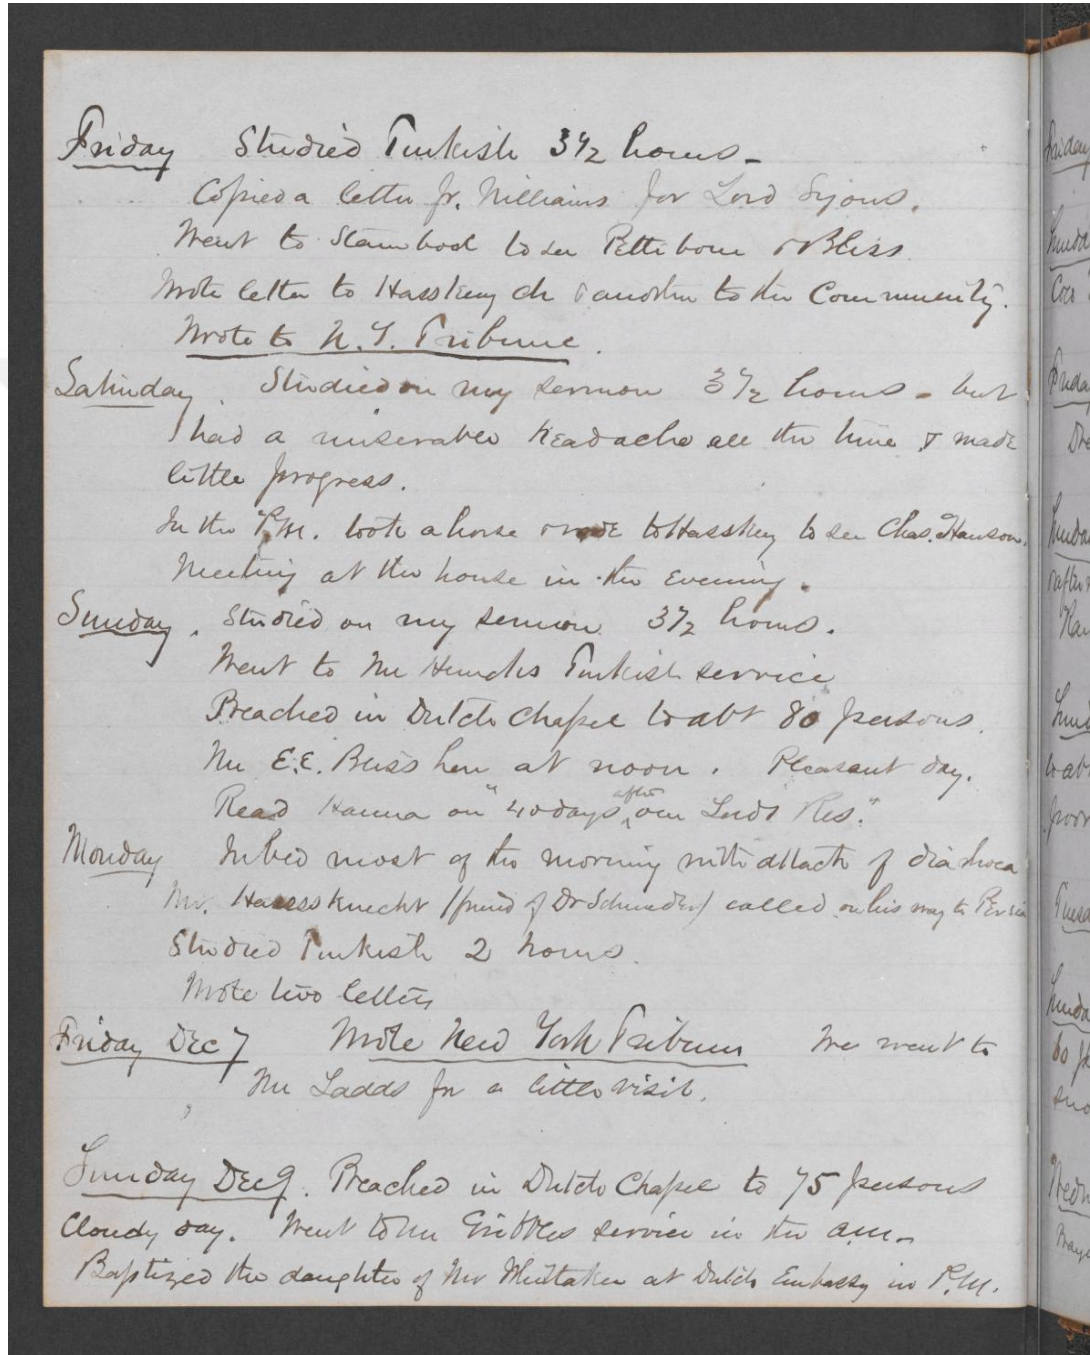 Friday Studied Turkish 3 1/2 hours -
Copied a letter fr. Williams for Lord Lyons.
Went to Stamboul to see Pettibone & Bliss
Wrote letter to Hasskeuy ch & another to the Community.
Wrote to N.Y. Tribune.
Saturday. Studied on my sermon 3 1/2 hours - but
I had a miserable headache all the time & made
little progress.
In the P.M. took a horse & rode to Hasskeuy to see Chas. Hanson.
Meeting at the house in the evening.
Sunday. Studied on my sermon 3 1/2 hours.
Went to Mr Turkish service
Preached in Dutch Chapel to abt 80 persons.
Mr E.E. Bliss here at noon. Pleasant day.
Read Hanna on "40 days after our Lords Res."
Monday In bed most of the morning with attack of diarhoea
Mr. Haessknecht (friend of Dr Schneider) called on his way to Persia
Studied Turkish 2 hours.
Wrote two letters
Friday Dec 7 Wrote New York Tribune We went to
Mr Ladds for a little visit.
Sunday Dec 9. Preached in Dutch Chapel to 75 persons
Cloudy day. Went to Mr Gribbles service in the a.m.
Baptized the daughter of Mr Whittaker at Dutch Embassy in P.M.